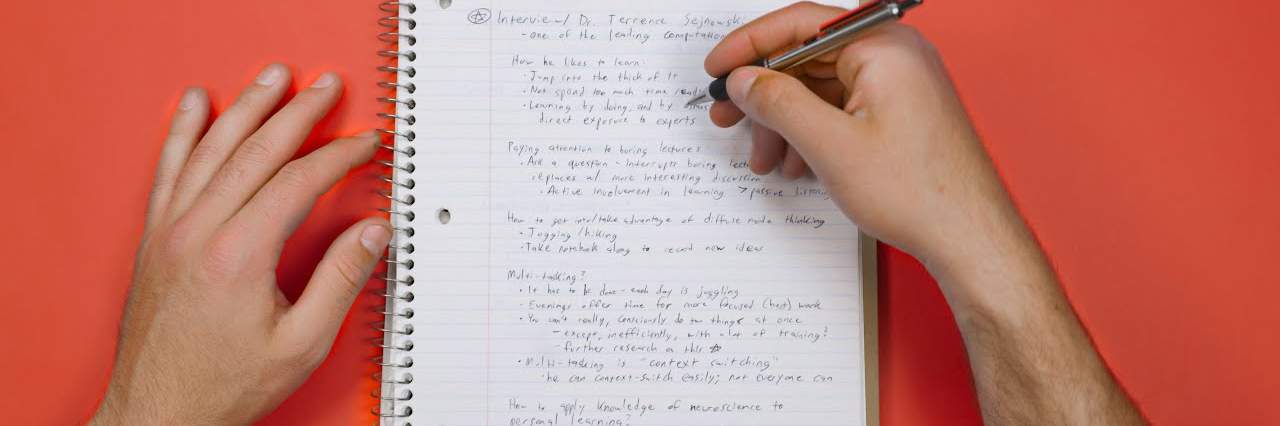 Interview w/ Dr. Terrence Sejnowski:
- one of the leading computation
How he likes to learn:
- Jump into the thick of it
- Not spend too much time
- Learning by doing, and by
direct exposure to experts
Paying attention to boring lectures
• Ask a question - interrupts boring
replaces w/ more interesting discussion
• Active involvement in learning > passive
How to get into/take advantage of diffuse mode thinking
• Jogging/hiking
- Take notebook along to record new ideas
Multi-tasking?
• It has to be done - each day is juggling
- Evenings offer time for more focused (best) work
• You can't really, consciously do two things at once
- except, inefficiently, with a lot of training?
- further research on this
• Multi-tasking is "context switching"
- he can context-switch easily; not everyone can
How to apply knowledge of neuroscience to
personal learning?